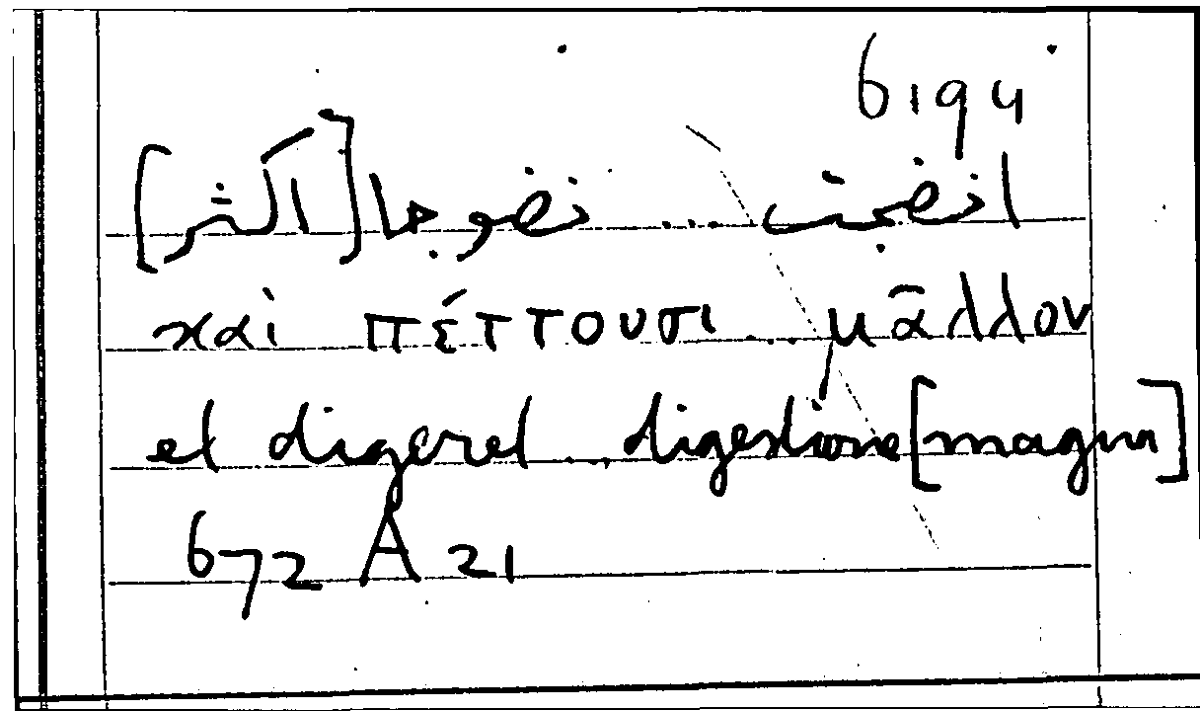 6194
انضجت ... نضوجا [اكثر]
καὶ πέττουσι ... μᾶλλον
et digeret ... digestione [magna]
672 A 21